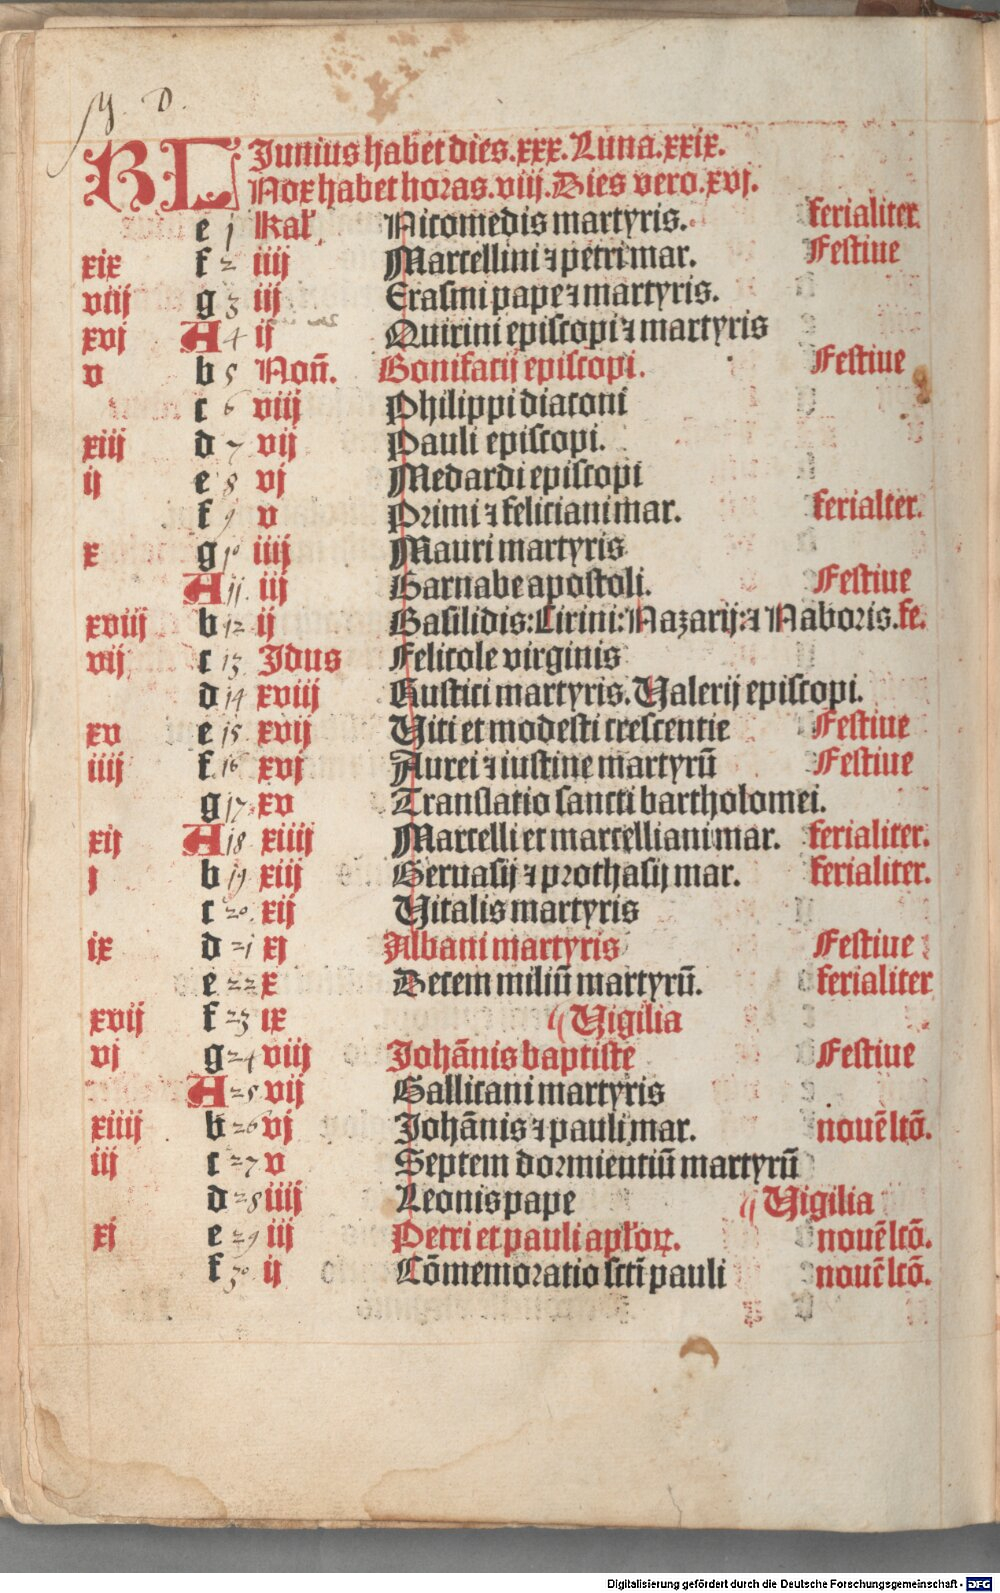 KL Junius habet dies.xxx. Luna.xxix.
Nox habet horas.viij. Dies vero.xvj.
e 1 kal' Nicomedis martyris. ferialiter.
xix f 2 iiij Marcellini ⁊ petri mar. Festiue
viij g 3 iij Erasmi pape ⁊ martyris.
xvj A 4 ij Quirini episcopi ⁊ martyris
v b 5 Non̄. Bonifacij episcopi. Festiue
c 6 viij Philippi diaconi
xiij d 7 vij Pauli episcopi.
ij e 8 vj Medardi episcopi
f 9 v Primi ⁊ feliciani mar. ferialter.
x g 10 iiij Mauri martyris
A 11. iij Barnabe apostoli. Festiue
xviij b 12 ij Basilidis: Cirini: Nazarij: ⁊ Naboris. fe.
vij c 13 Idus Felicole virginis
d 14 xviij Rustici martyris. Valerij episcopi.
xv e 15 xvij Viti et modesti crescentie Festiue
iiij f 16 xvj Aurei ⁊ iustine martyrū Festiue
g 17 xv Translatio sancti bartholomei.
xij A 18 xiiij Marcelli et marcelliani mar. ferialiter.
j b 19 xiij Geruasij ⁊ prothasij mar. ferialiter.
c 20 xij Vitalis martyris
ix d 21 xj Albani martyris Festiue
e 22 x Decem miliū martyrū. ferialiter
xvij f 23 ix Vigilia
vj g 24 viij Johānis baptiste Festiue
A 25 vij Gallicani martyris
xiiij b 26 vj Johānis ⁊ pauli mar. nouē lcō.
iij c 27 v Septem dormientiū martyrū
d 28 iiij Leonis pape Vigilia
xj e 29 iij Petri et pauli apl'oꝝ. nouē lcō.
f 30 ij Cōmemoratio scti̅ pauli nouē lcō.
Digitalisierung gefördert durch die Deutsche Forschungsgemeinschaft - DFG